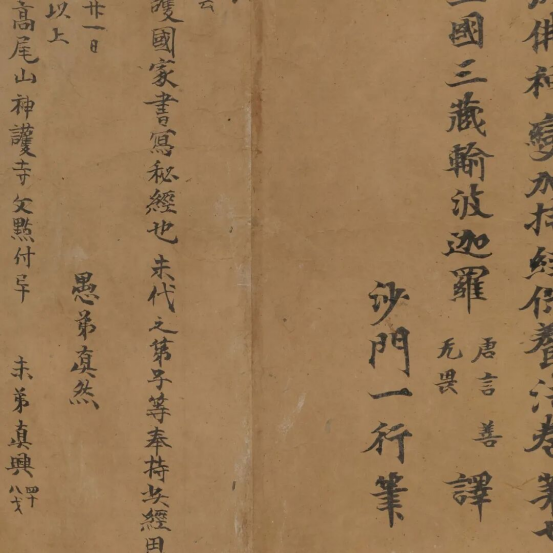 神變加持經供養法卷第七
國三藏輸波迦羅 唐言善无畏 譯
沙門一行筆
護國家書寫秘經也 末代之第子等奉持此經田
愚弟真然
廿一日
以上
高尾山神護寺交點付早 末弟真興 四十八才